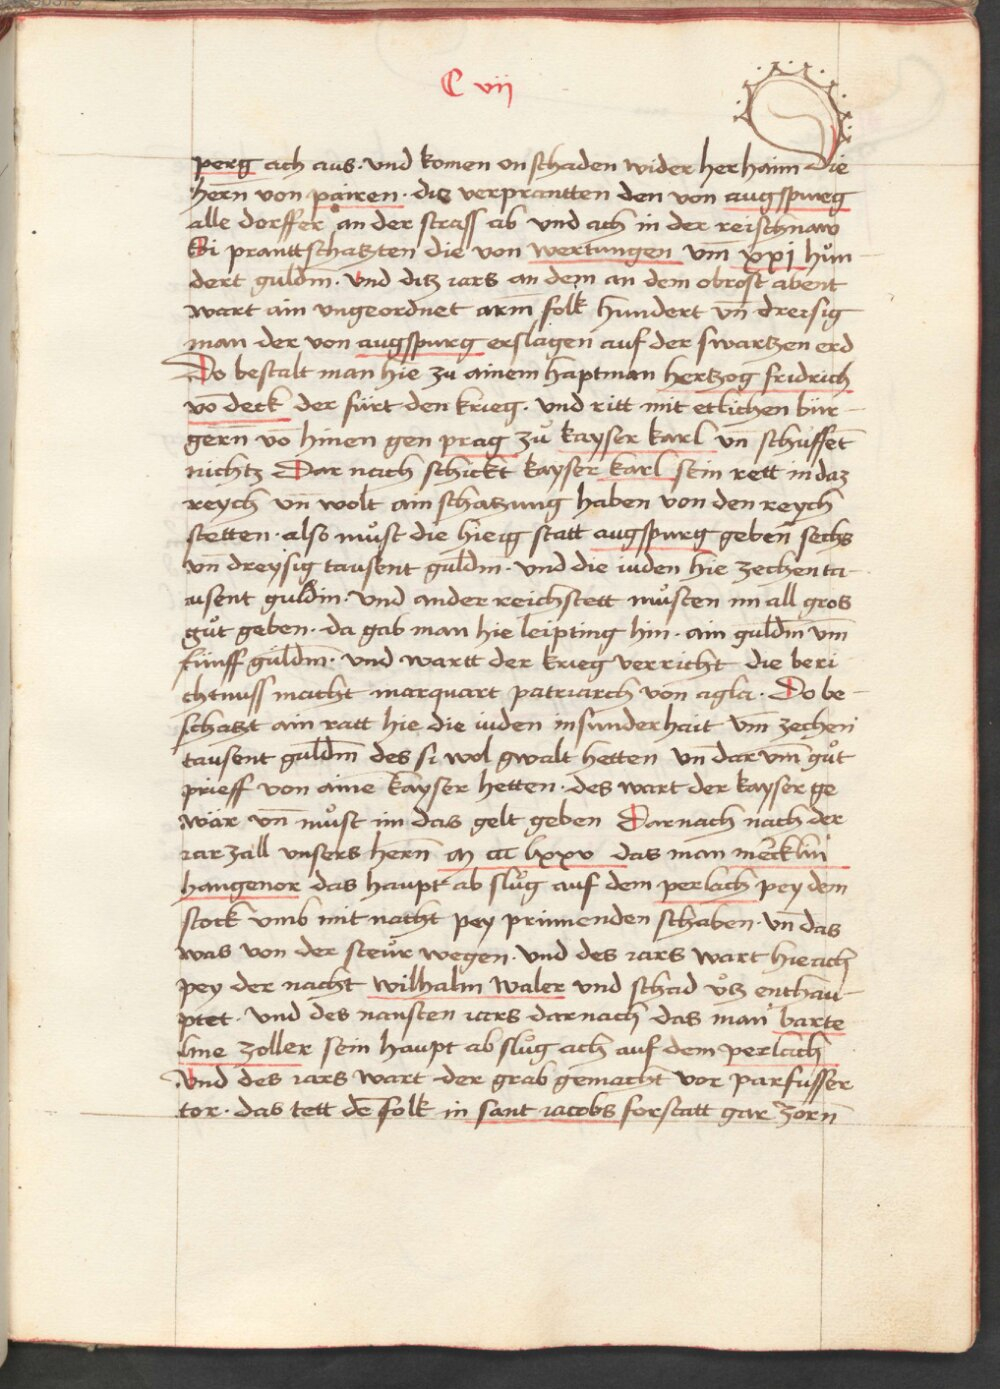 C vii
perg ach aus · vnd komen on schaden wider her haim Die
hern̄ von pairen · die verprantten den von augspurg
alle dorffer an der strass ab vnd ach in der reischnaw
Si pranttschatzten die von wertungen vm̄ xxj hůn
dert guldin · Vnd ditz iars an dem an dem obrost abent
wart ain vngeordnet arm folk hundert vn̄ dreisig
man der von augspurg erslagen auf der swartzen erd
Do bestalt man hie zu ainem haptman hertzog fridrich
vō deck der fürt den krieg · vnd ritt mit etlichen bür-
gern vō hinen gen prag zů kayser karl vn̄ schuffet̄
nichtz Dar nach schickt kayser karl sein rett in daz
reych vn̄ wolt ain schatzung haben von den reych
stetten · also můst die hieig statt augspurg geben̄ sechs
vn̄ dreysig tausent guldin · vnd die iuden hie zechen ta-
usent guldin · Vnd ander reichstett můsten im all gros
gůt geben · da gab man hie leipting hin · ain guldin vm̄
fünff guldin · vnd wartt der krieg verricht die beri
chtnuss macht marquart patriarch von agla · Do be-
schatzt ain ratt hie die iuden in sunderhait vm̄ zechen
tausent guldin des si wol gwalt hetten vn̄ dar vm̄ gůt
prieff von ainē kayser hetten · des wart der kayser ge
wär vn̄ můst im das gelt geben Darnach nach der
iar zall vnsers hern̄ m ccc lxxv das man mercklin
hangenor das haupt ab slůg auf dem perlach pey dem
stock vmb mit nacht pey prinnenden schaben · vn̄ das
was von der steůr wegen · vnd des iars wart hie ach
pey der nacht wilhalm waler vnd schad ůtz enthau-
ptet · vnd des nansten iars darnach das man barte
lme zoller sein haupt ab slůg ach auf dem perlach
Vnd des iars wart der grab gemacht vor parfusser
tor · das tett dē folk in sant iacobs forstatt gar zorn̄